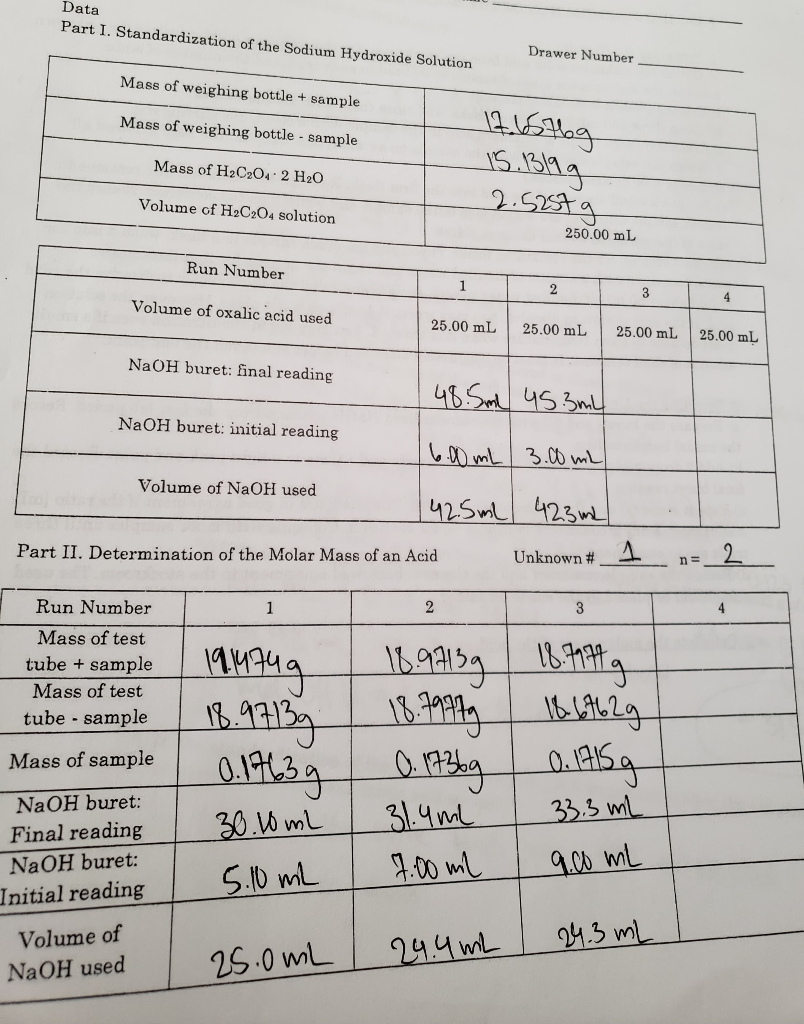 Data
Part I. Standardization of the Sodium Hydroxide Solution
Drawer Number
Mass of weighing bottle + sample 17.6576g
Mass of weighing bottle - sample 15.1319g
Mass of H₂C₂O₄ · 2 H₂O 2.5257g
Volume of H₂C₂O₄ solution 250.00 mL
Run Number 1 2 3 4
Volume of oxalic acid used 25.00 mL 25.00 mL 25.00 mL 25.00 mL
NaOH buret: final reading 48.5mL 45.3mL
NaOH buret: initial reading 6.00 mL 3.00 mL
Volume of NaOH used 42.5mL 42.3mL
Part II. Determination of the Molar Mass of an Acid Unknown # 1 n= 2
Run Number 1 2 3 4
Mass of test
tube + sample 19.1474g 18.9713g 18.7977g
Mass of test
tube - sample 18.9713g 18.7977g 18.6262g
Mass of sample 0.1763g 0.1736g 0.1715g
NaOH buret:
Final reading 30.10 mL 31.4 mL 33.3 mL
NaOH buret:
Initial reading 5.10 mL 7.00 mL 9.00 mL
Volume of
NaOH used 25.0 mL 24.4 mL 24.3 mL